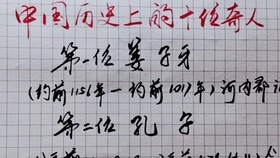 中国历史上的十位奇人
第一位 姜子牙
(约前1156年-约前1017年)河内郡
第二位 孔子